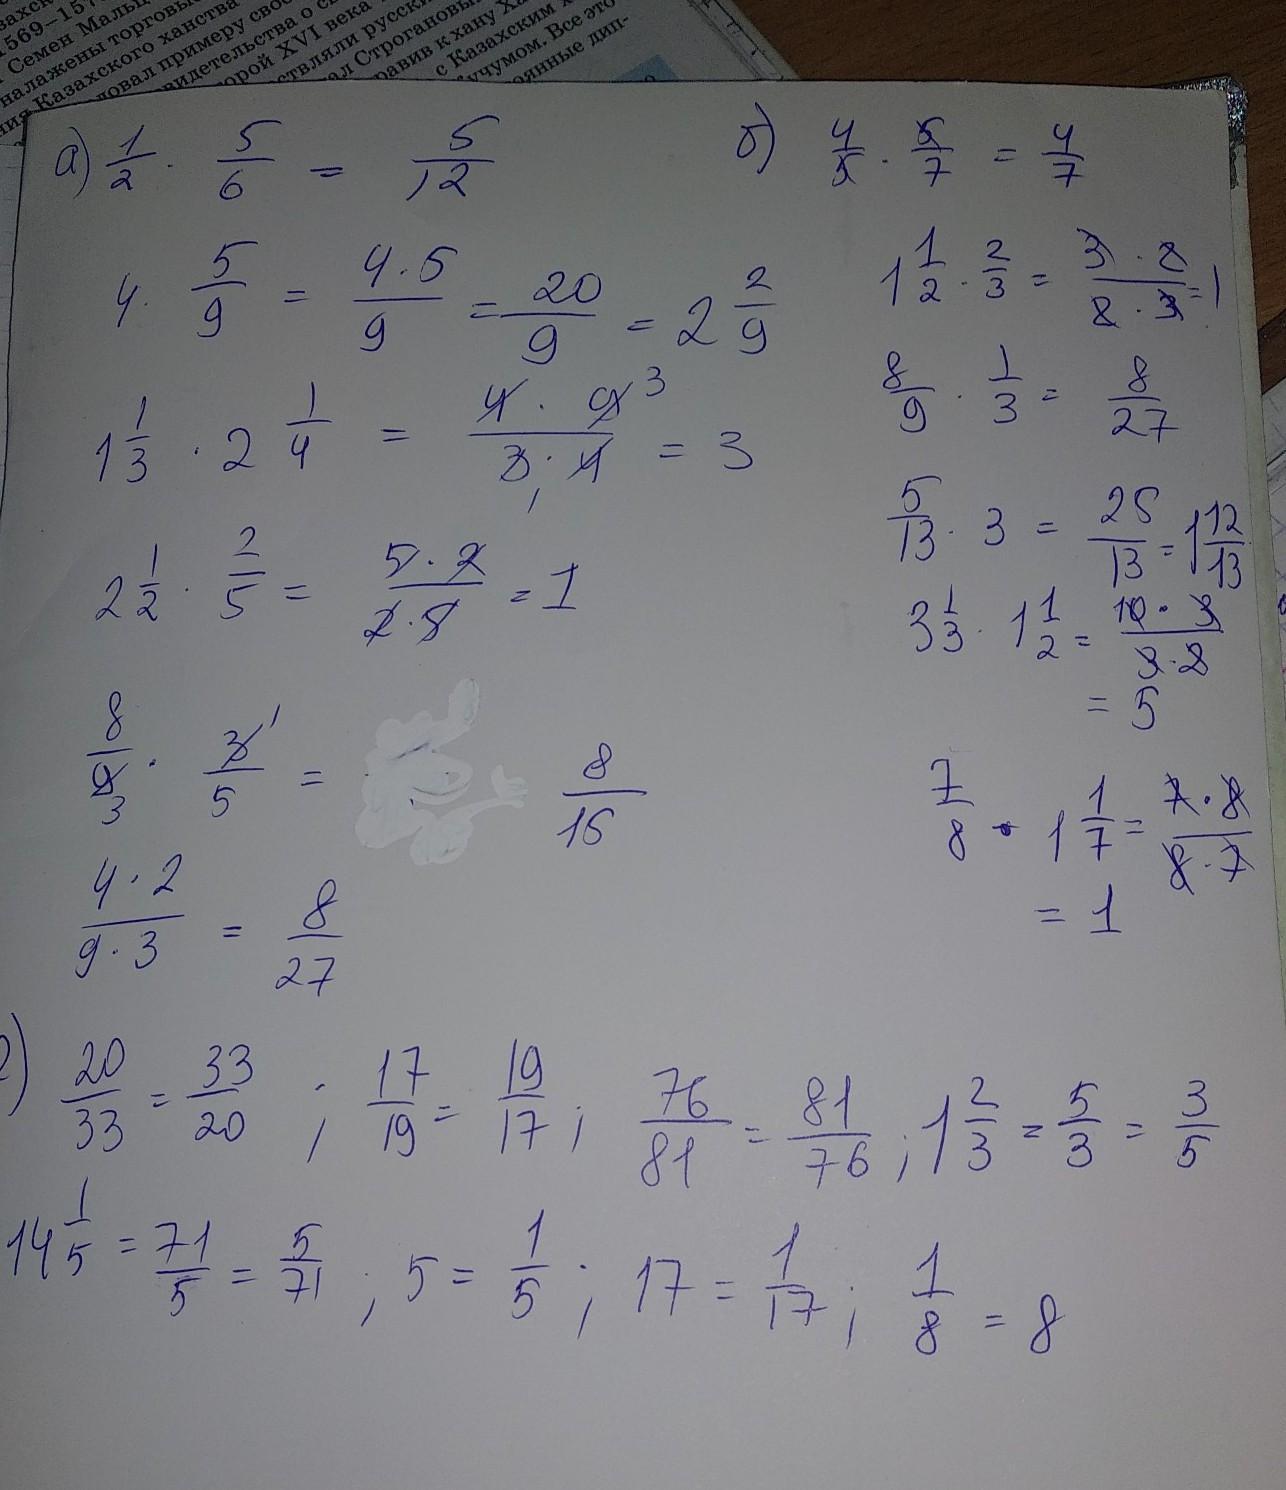 1569–157
Семен Малы
налажены торговые
ния Казахского ханства
довал примеру свое
видетельства о с
орой XVI века
ствляли русски
ал Строгановы
равив к хану Ха
с Казахским х
учумом. Все это
оянные дип-
а) 1/2 · 5/6 = 5/12
4 · 5/9 = 4·5/9 = 20/9 = 2 2/9
1 1/3 · 2 1/4 = 4·9 3/3·4 1 = 3
2 1/2 · 2/5 = 5·2/2·5 = 1
8/9 3 · 3 1/5 = 8/15
4·2/9·3 = 8/27
б) 4/5 · 5/7 = 4/7
1 1/2 · 2/3 = 3·2/2·3 = 1
8/9 · 1/3 = 8/27
5/13 · 3 = 25/13 = 1 12/13
3 1/3 · 1 1/2 = 10·3/3·2
= 5
7/8 · 1 1/7 = 7·8/8·7
= 1
20/33 = 33/20 ; 17/19 = 19/17 ; 76/81 = 81/76 ; 1 2/3 = 5/3 = 3/5
14 1/5 = 71/5 = 5/71 ; 5 = 1/5 ; 17 = 1/17 ; 1/8 = 8